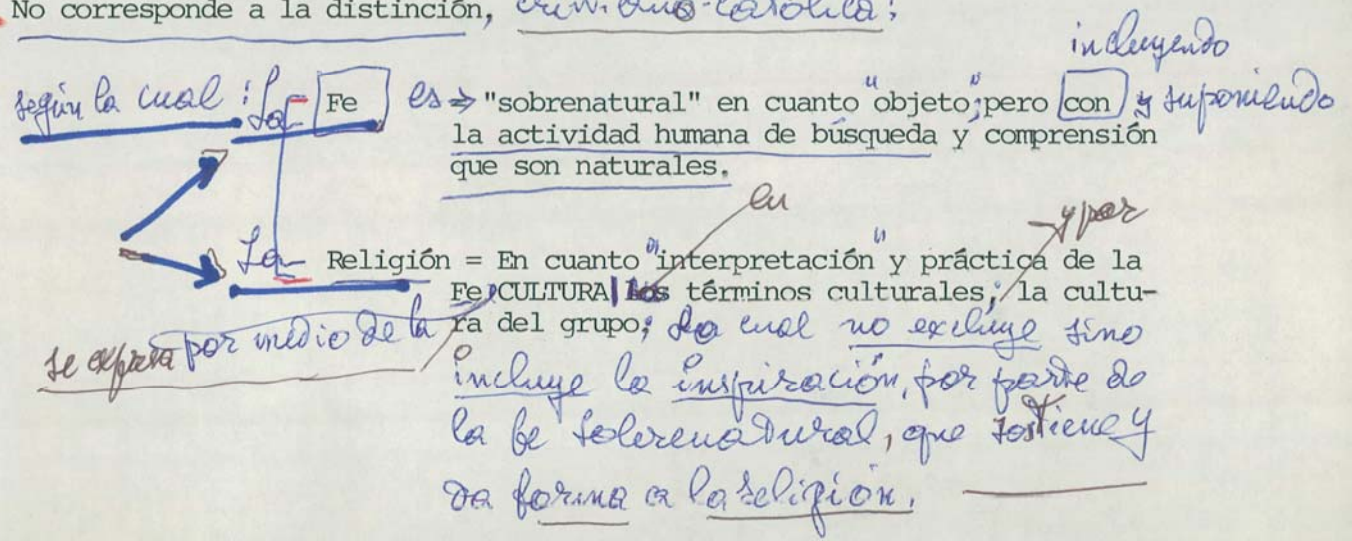 No corresponde a la distinción, cristiano-católica:
incluyendo
según la cual: La Fe es ⇒ "sobrenatural" en cuanto "objeto"; pero con y suponiendo
la actividad humana de búsqueda y comprensión
que son naturales.
en
y por
La Religión = En cuanto "interpretación" y práctica de la
Fe, CULTURA los términos culturales; la cultu-
se expresa por medio de la
ra del grupo; la cual no excluye sino
o
incluye la inspiración, por parte de
la fe sobrenatural, que sostiene y
da forma a la religión.